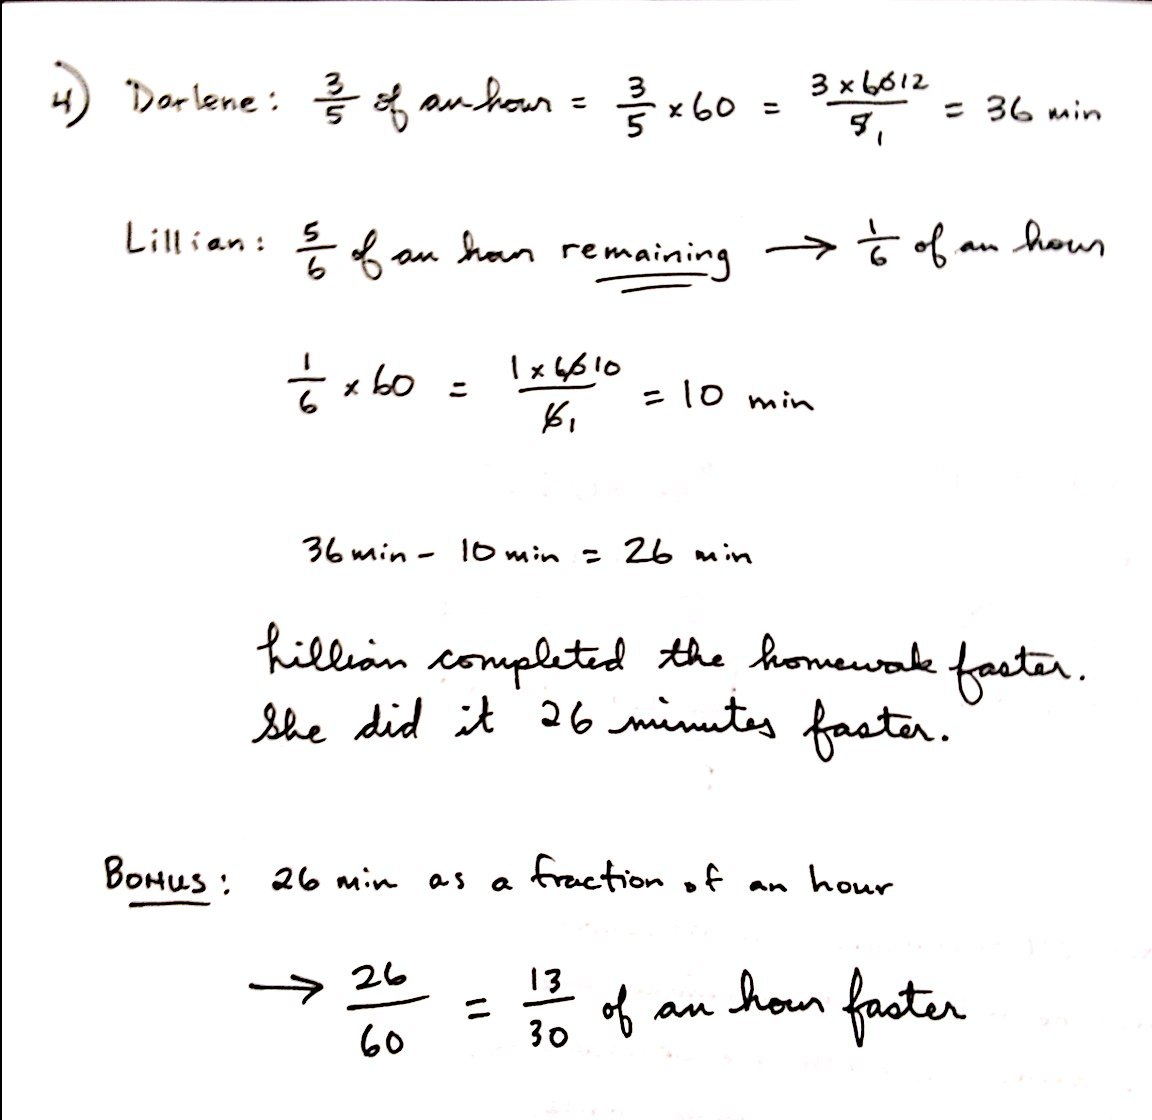 4) Darlene: 3/5 of an hour = 3/5 x 60 = 3 x 60 12 / 5 1 = 36 min
Lillian: 5/6 of an hour remaining → 1/6 of an hour
1/6 x 60 = 1 x 60 10 / 6 1 = 10 min
36 min - 10 min = 26 min
Lillian completed the homework faster.
She did it 26 minutes faster.
BONUS: 26 min as a fraction of an hour
→ 26/60 = 13/30 of an hour faster